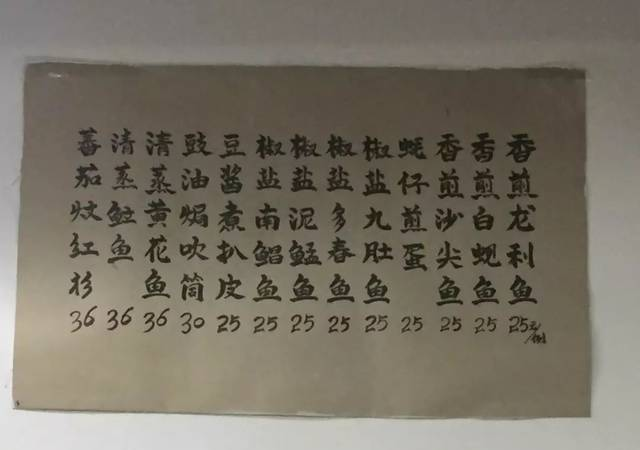 香煎龙利鱼 25元/例
香煎白蚬鱼 25
香煎沙尖鱼 25
蚝仔煎蛋 25
椒盐九肚鱼 25
椒盐多春鱼 25
椒盐泥鯭鱼 25
椒盐南鲳鱼 25
豆酱煮扒皮 25
豉油焗吹筒 30
清蒸黄花鱼 36
清蒸鱼 36
蕃茄炆红杉 36